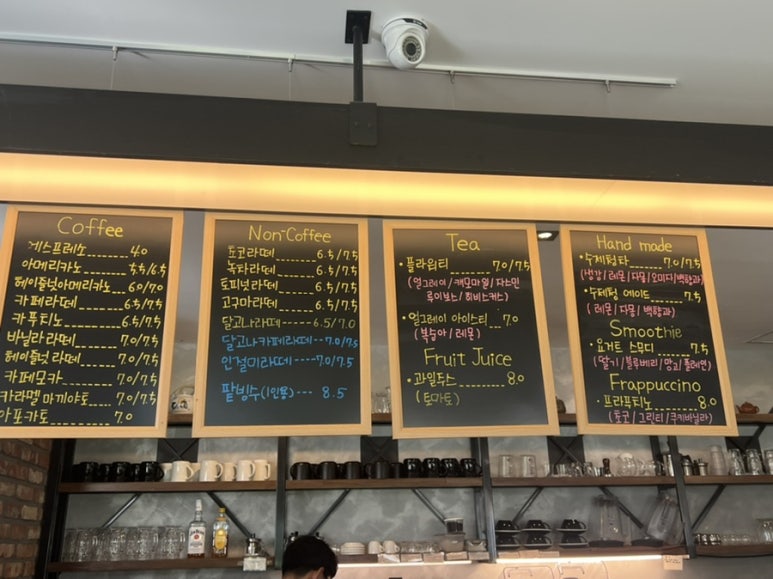 Coffee
에스프레소 4.0
아메리카노 5.5/6.5
헤이즐넛아메리카노 6.0/7.0
카페라떼 6.5/7.5
카푸티노 6.5/7.5
바닐라 라떼 7.0/7.5
헤이즐넛 라떼 7.0/7.5
카페모카 7.0/7.5
카라멜 마끼야토 7.0/7.5
아포카토 7.0
Non-Coffee
토코라떼 6.5/7.5
녹타라떼 6.5/7.5
토피넛라떼 6.5/7.5
고구마라떼 6.5/7.5
달고나라떼 6.5/7.0
달고나카페라떼 7.0/7.5
인절미라떼 7.0/7.5
팥빙수(1인용) 8.5
Tea
· 플라워티 7.0/7.5
(얼그레이/캐모마일/자스민
루이보스/히비스커스)
· 얼그레이 아이스티 7.0
(복숭아/레몬)
Fruit Juice
· 과일쥬스 8.0
(토마토)
Hand made
· 수제청차 7.0/7.5
(생강/레몬/자몽/오미자/백향과)
· 수제청 에이드 7.5
(레몬/자몽/백향과)
Smoothie
· 요거트 스무디 7.5
(딸기/블루베리/망고/플레인)
Frappuccino
· 프라푸티노 8.0
(토코/그린티/쿠키바닐라)